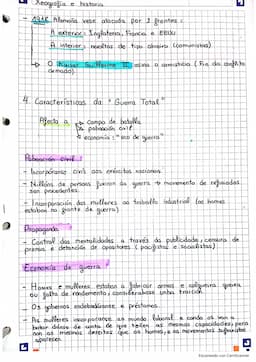 Xeografía e historia
- 1918 Alemaña vese atacada por 2 frentes:
A exterior: Inglaterra, Francia e EEUU
A interior: revoltas de tipo obreiro (comunistas)
→ O Kaiser Guillerme II asina o armisticio (Fin do conflito
armado).
4. Características da "Guerra Total"
Afecta a → campo de batalla
→ poboación civil
→ economía: "eco de guerra"
Poboación civil
- Incorpóranse civís aos exércitos nacionais
- Millóns de persoas foxen da guerra → movemento de refuxiados
sen precedentes.
- Incorporación das mulleres ao traballo industrial (os homes
estaban na fronte de guerra)
Propaganda
- Control das mentalidades a través da publicidade, censura de
prensa, e detención de opositores (pacifistas e socialistas)
Economía de guerra
- Homes e mulleres estaban a fabricar armas e calquera queixa
ou falta de rendemento, considerábase unha traición.
- Os gobernos endebedáronse e préstamos.
- As mulleres incorpóranse ao mundo laboral e cando as van a
botar danse de conta de que teñen as mesmas capacidades, pero
son os mesmos dereitos que os homes, e os movementos sufraxistas
aparecen.
Escaneado con CamScanner